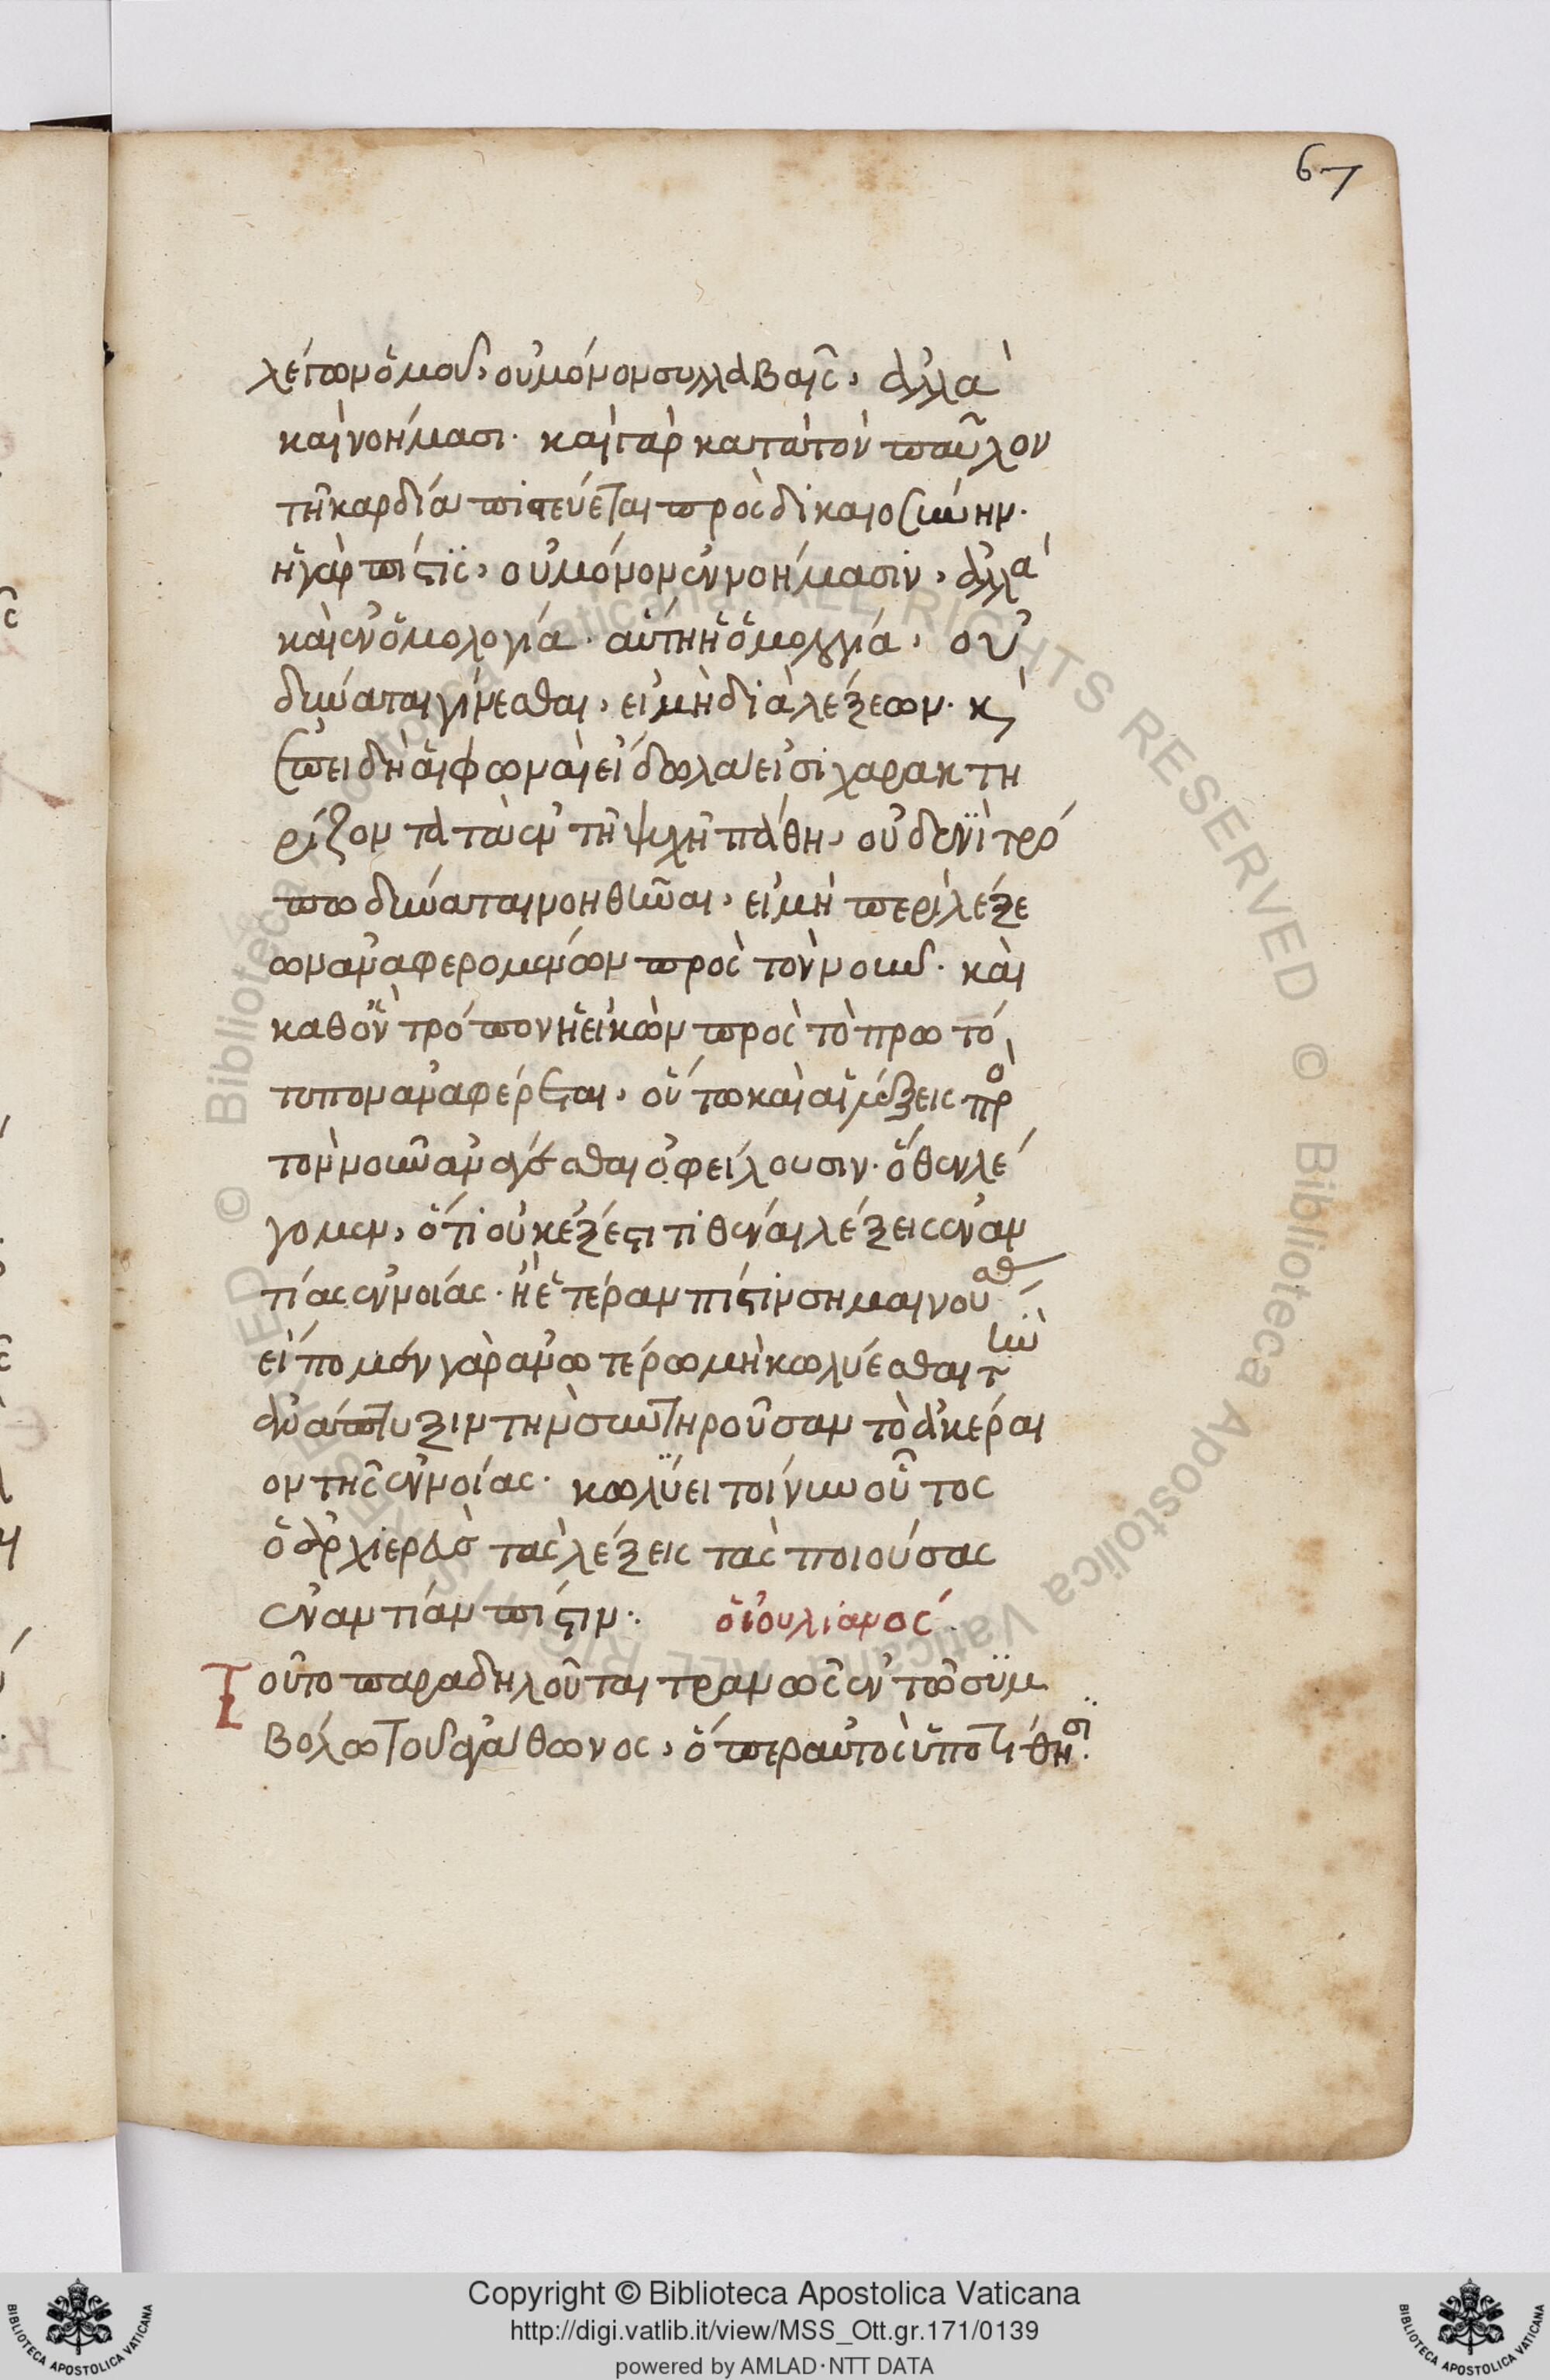 67
λέγων ὁμοῦ, οὐ μόνον συλλαβαῖς, ἀλλὰ
καὶ νοήμασι. καὶ γὰρ κατὰ τὸν παῦλον
τῆ καρδία πιστεύεται πρὸς δικαιοσύνην.
ἡ γὰρ πίστϊς, οὐ μόνον ἐν νοήμασιν, ἀλλὰ
καὶ ἐν ὁμολογία. αὕτη ἡ ὁμολογία, οὐ
δύναται γίνεσθαι, εἰ μὴ διὰ λέξεων. κ
ἐπειδὴ αἱ φωναὶ εἴδωλα εἰσὶ χαρακτη
ρίζοντα τὰ ἐν τῆ ψυχῆ πάθη, οὐδενὶ τρό
πω δύναται νοηθῆναι, εἰ μὴ περὶ λέξε
ων ἀναφερομένων πρὸς τὸν νοῦν. καὶ
καθ ὃν τρόπον ἡ εἰκὼν πρὸς τὸ πρωτό
τυπον ἀναφέρεται, οὕτω καὶ αἱ λέξεις πρὸ
τὸν νοῦν ἀνάγεσθαι ὀφείλουσιν. ὅθεν λέ
γομεν, ὅτι οὐκ ἔξεστι τιθέναι λέξεις ἐναν
τίας ἐννοίας. ἢ ἑτέραν πίστιν σημαινού
εἴπομεν γὰρ ἀνωτέρω μὴ κωλύεσθαι τὴν
ἀνάπτυξιν τὴν συντηροῦσαν τὸ ἀκέραι
ον τῆς ἐννοίας. κωλύει τοίνυν οὗτος
ὁ ἀρχιερεὺς τὰς λέξεις τὰς ποιούσας
ἐναντίαν πίστιν. ὁ ἰουλιανός.
Τοῦτο παραδηλοῦται τρανῶς ἐν τῶ συμ
βόλω τοῦ ἀγάθωνος, ὅπερ αὐτὸς ὑποτίθησι.
© Biblioteca Apostolica Vaticana. ALL RIGHTS RESERVED © Biblioteca Apostolica Vaticana. ALL RIGHTS RESERVED
Copyright © Biblioteca Apostolica Vaticana
http://digi.vatlib.it/view/MSS_Ott.gr.171/0139
powered by AMLAD·NTT DATA
BIBLIOTECA APOSTOLICA VATICANA
BIBLIOTECA APOSTOLICA VATICANA